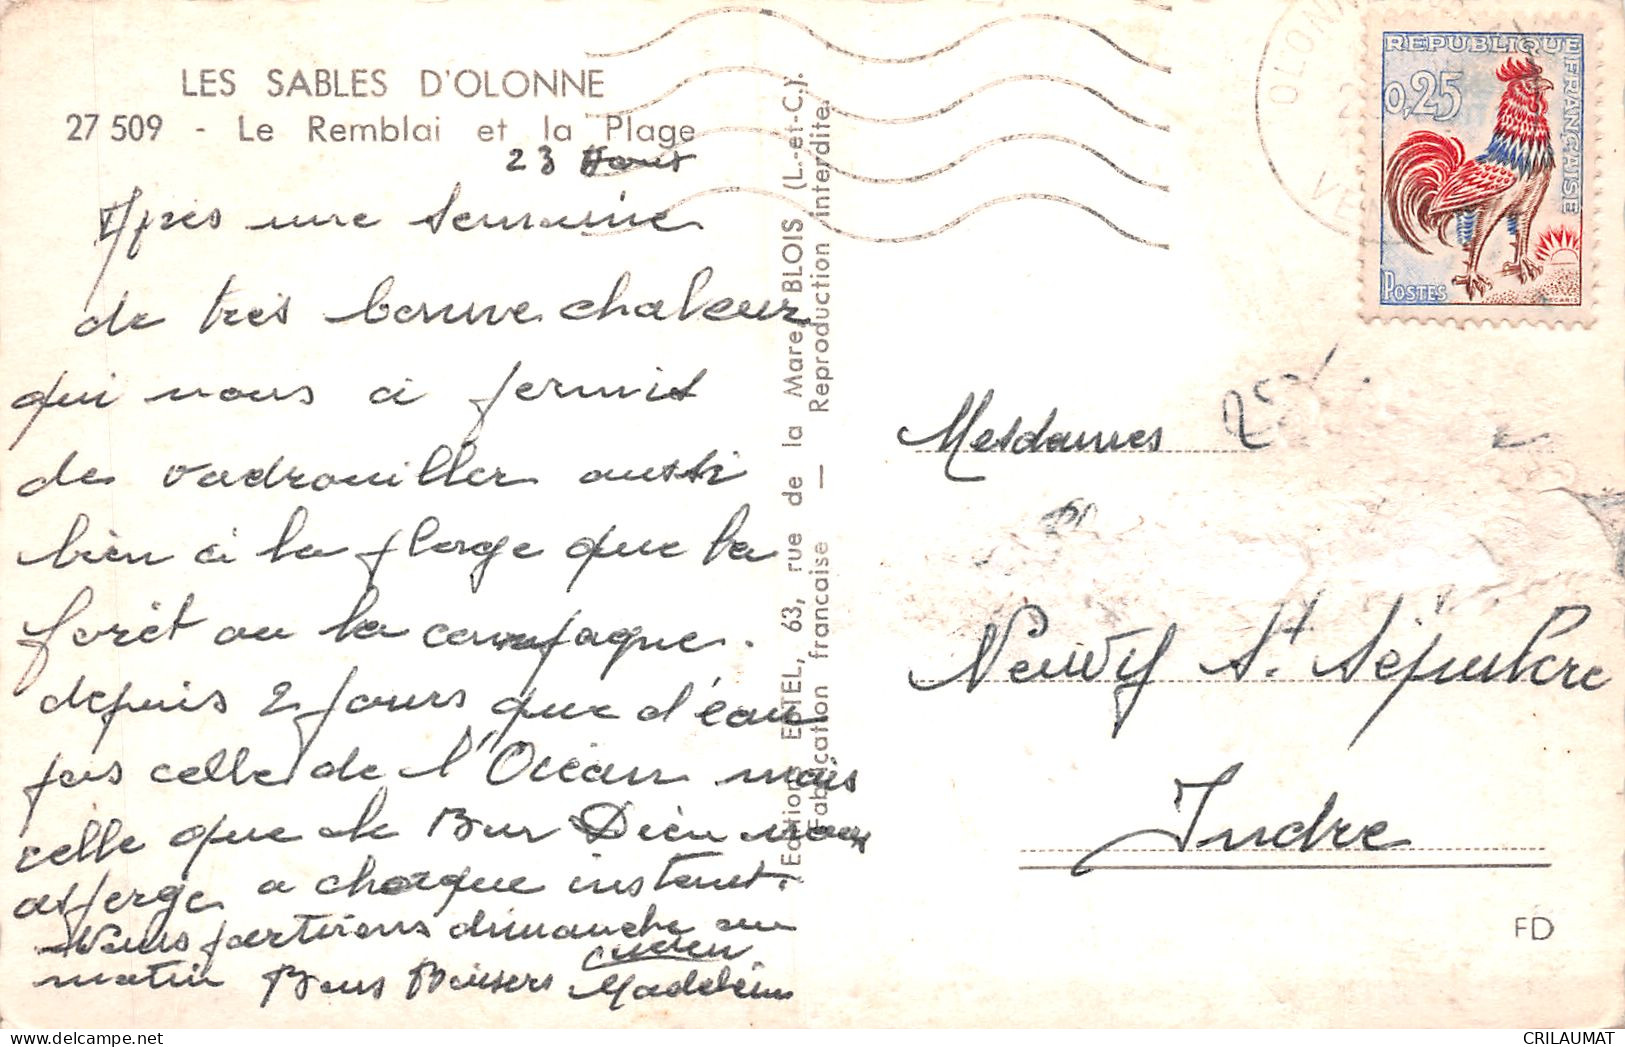 LES SABLES D'OLONNE
27 509 - Le Remblai et la Plage
23 Aout
Après une semaine
de très bonne chaleur
qui nous a permis
de vadrouiller aussi
bien à la plage que la
forêt ou la campagne.
depuis 2 jours que d'éau
pas celle de l'Océan mais
celle que le Bon Dieu nous
asperge a chaque instant.
Nous partirons dimanche au
matin Bons Baisers
Madeleine
Editions EITEL, 63, rue de la Mare, BLOIS (L.-et-C.).
Fabrication francaise — Reproduction interdite.
OLONN
REPUBLIQUE FRANÇAISE
0,25
POSTES
DECARIS
Mesdames
Neuvy St. Sépulcre
Indre
FD
CRILAUMAT